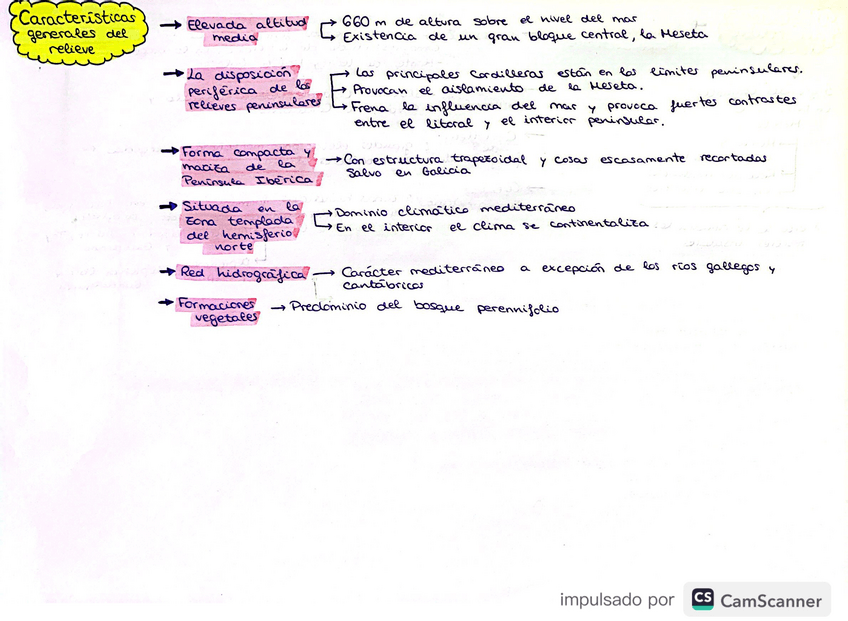 Características
generales del
relieve
→ Elevada altitud
media
→ 660 m de altura sobre el nivel del mar
→ Existencia de un gran bloque central, la Meseta
→ La disposición
periférica de los
relieves peninsulares
→ Las principales cordilleras están en los límites peninsulares.
→ Provocan el aislamiento de la Meseta.
→ Frena la influencia del mar y provoca fuertes contrastes
entre el litoral y el interior peninsular.
→ Forma compacta y
maciza de la
Península Ibérica
→ Con estructura trapezoidal y cosas escasamente recortadas
salvo en Galicia
→ Situada en la
zona templada
del hemisferio
norte
→ Dominio climático mediterráneo
→ En el interior el clima se continentaliza
→ Red hidrográfica
→ Carácter mediterráneo a excepción de los ríos gallegos y
cantábricos
→ Formaciones
vegetales
→ Predominio del bosque perennifolio
impulsado por CS CamScanner